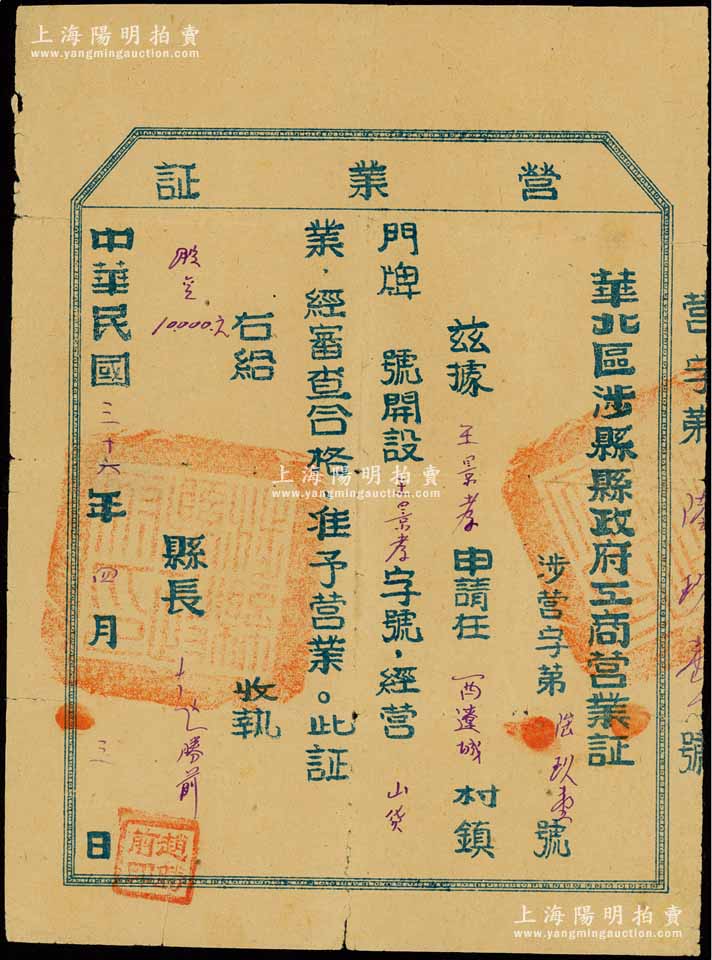 上海陽明拍賣
www.yangmingauction.com
營業証
營字第陸玖壹號
華北區涉縣縣政府工商營業証
涉營字第陸玖壹號
茲據王景孝申請在西達城村鎮
門牌 號開設王景孝字號，經營山貨
業，經審查合格，准予營業。此証
右給 收執
股金10.000.元
縣長 趙勝前
中華民國三十六年四月三日
趙勝前印
上海陽明拍賣
www.yangmingauction.com
上海陽明拍賣
www.yangmingauction.com